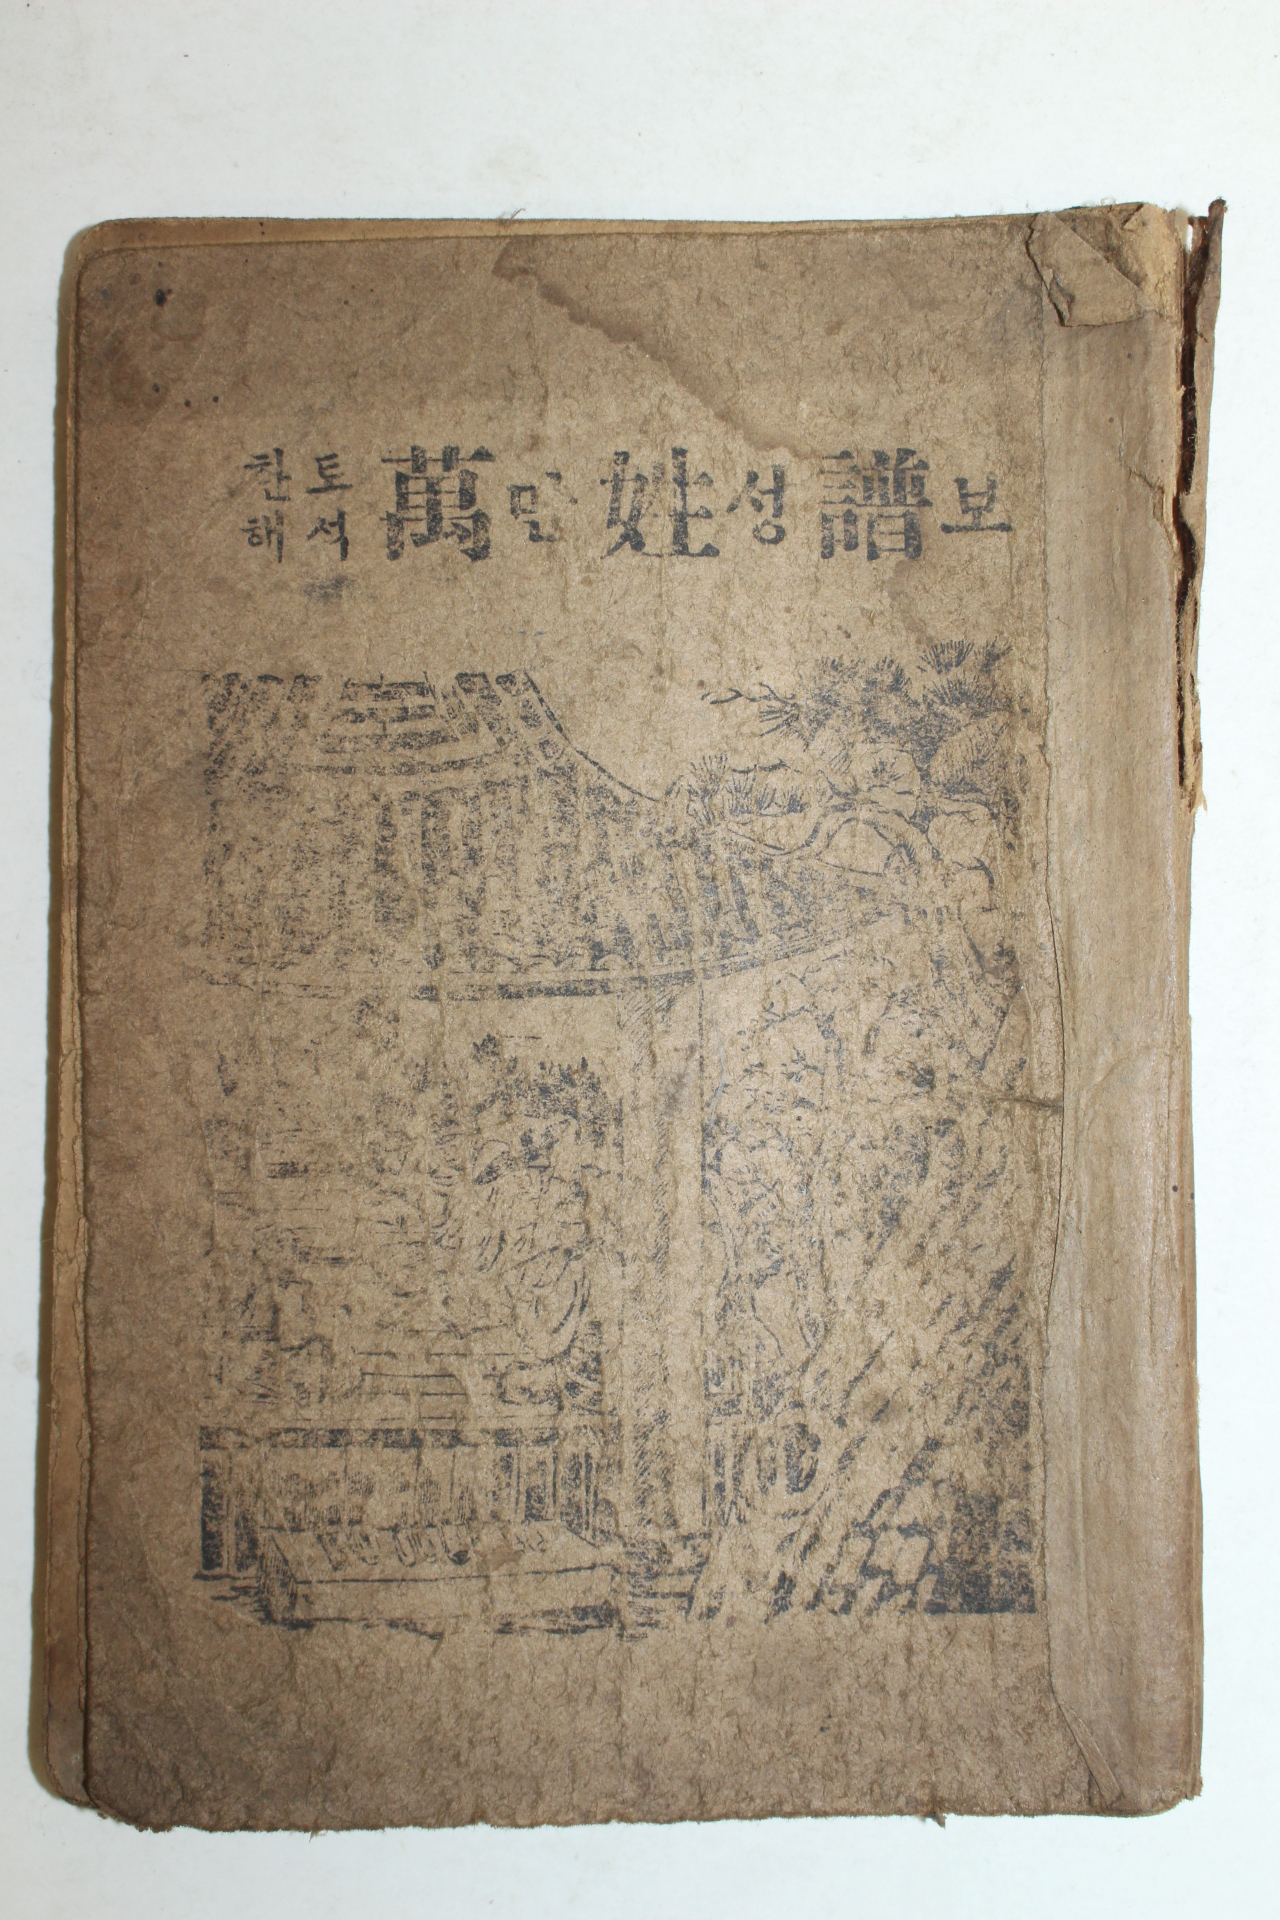 찬토해석 萬만 姓성 譜보